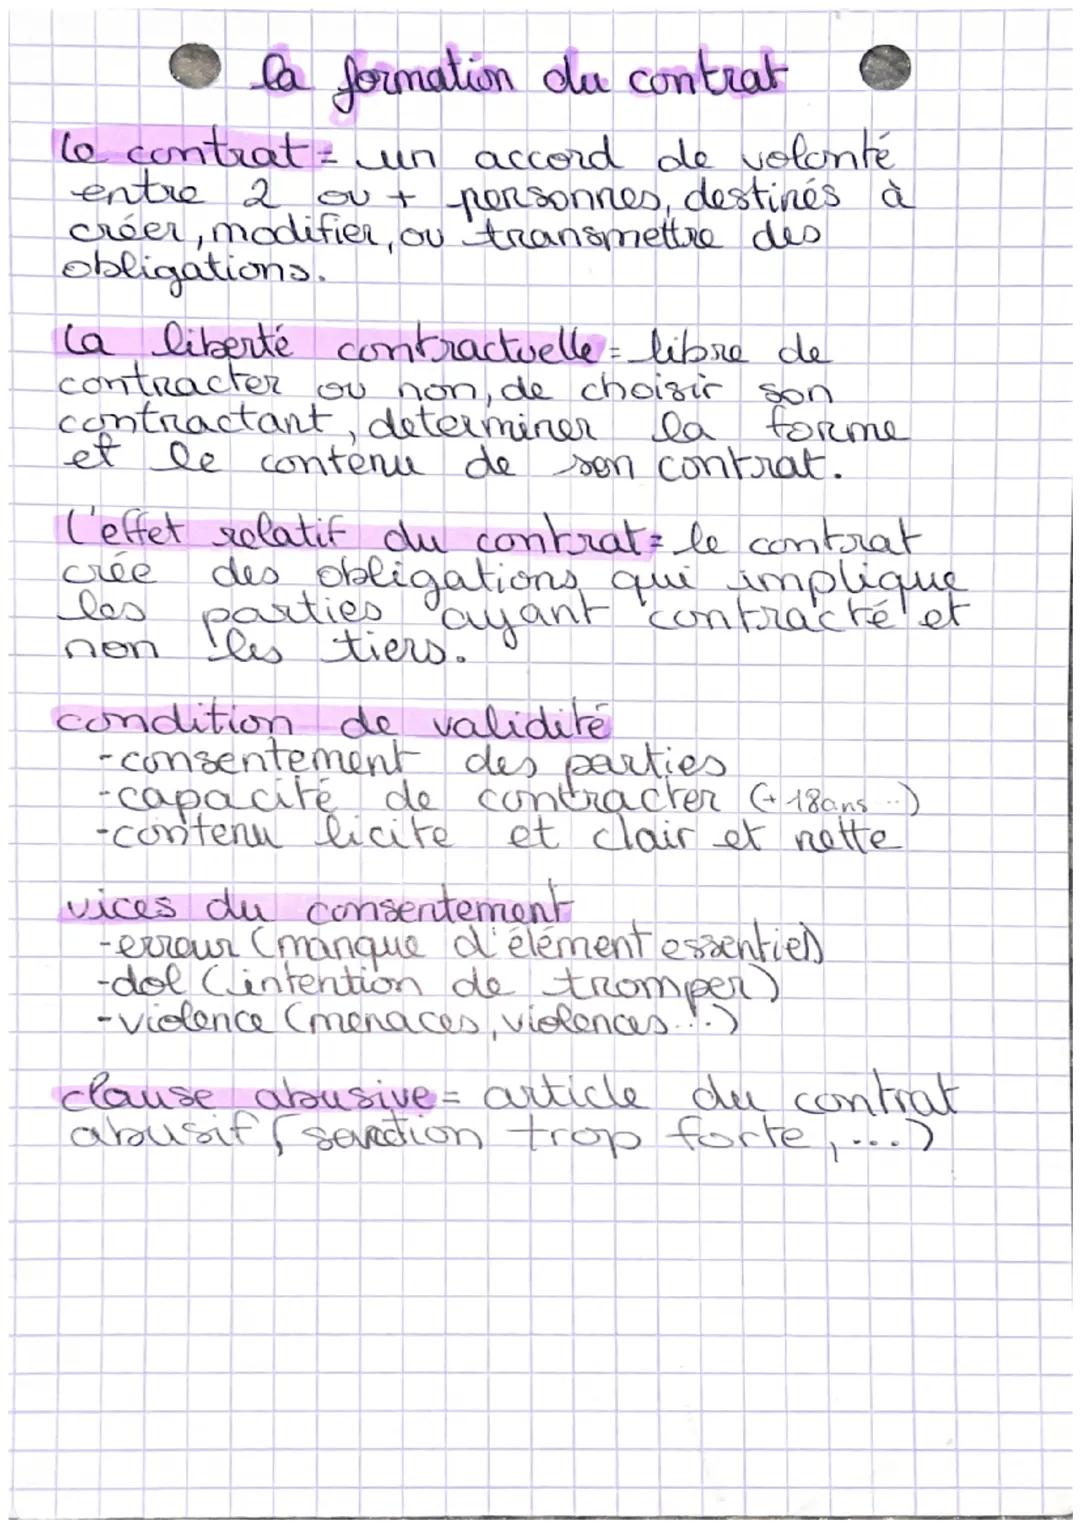 la formation du contrat
le contrat = un accord de volonté
entre 2 ou + personnes, destinés à
créer, modifier, ou transmettre des
obligations.
la liberté contractuelle = libre de
contracter ou non, de choisir son
contractant, determiner la forme
et le contenu de son contrat.
l'effet relatif du contrat = le contrat
crée des obligations qui implique
les parties ayant contracté et
non les tiers.
condition de validité
-consentement des parties
-capacité de contracter (+ 18ans ...)
-contenu licite et clair et nette
vices du consentement
-erreur (manque d'élément essentiel)
-dol (intention de tromper)
-violence (menaces, violences...)
clause abusive = article du contrat
abusif (sanction trop forte, ...)